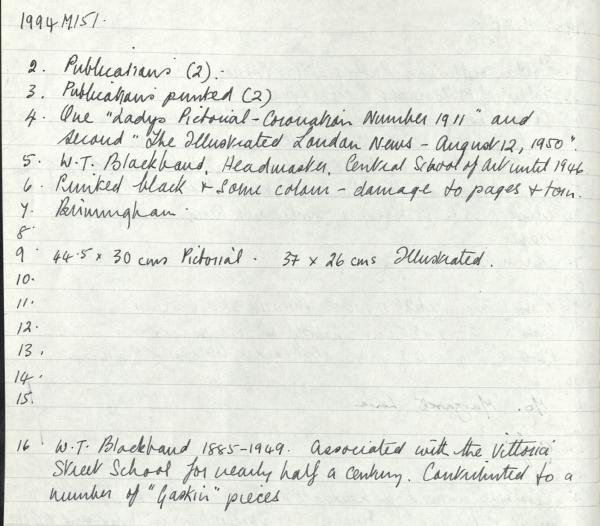 1994 M151.
2. Publications (2).
3. Publications printed (2)
4. One "Ladys Pictorial - Coronation Number 1911" and
second "The Illustrated London News - August 12, 1950".
5. W.T. Blackband, Headmaster, Central School of Art until 1946
6. Printed black & some colour - damage to pages & torn.
7. Birmingham.
8.
9. 44.5 x 30 cms Pictorial. 37 x 26 cms Illustrated.
10.
11.
12.
13.
14.
15.
16. W.T. Blackband 1885-1949. Associated with the Vittoria
Street School for nearly half a century. Contributed to a
number of "Gaskin" pieces